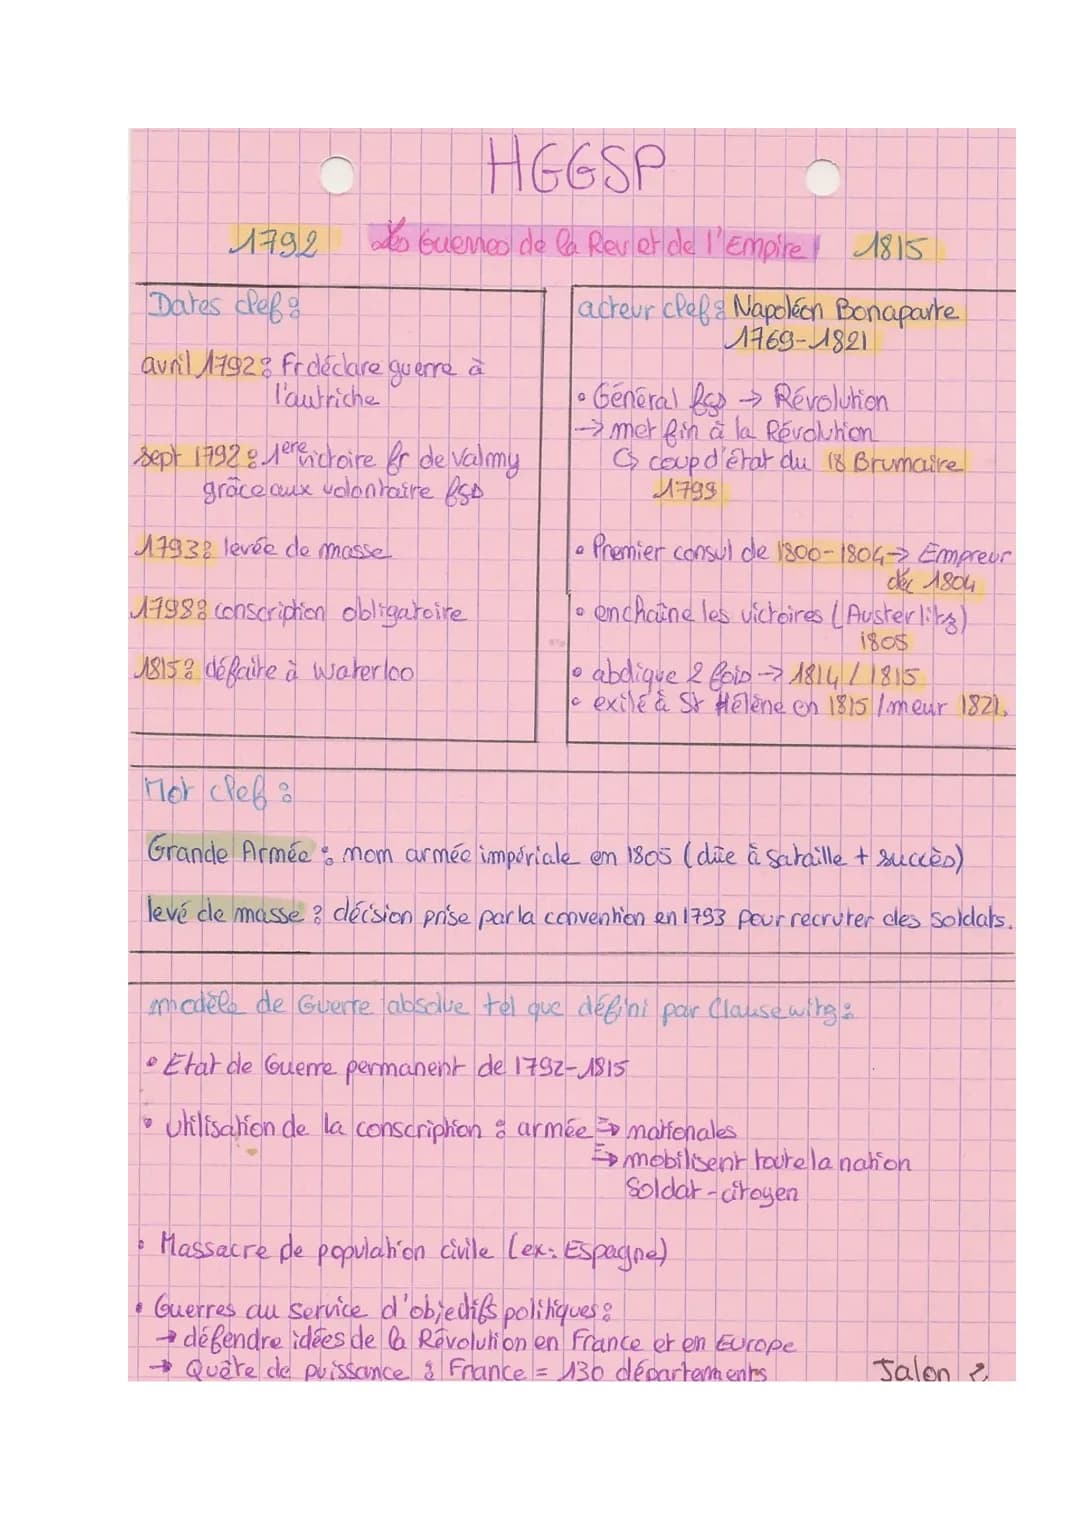 HGGSP
1792 Les Guerres de la Rev et de l'Empire 1815
Dates clef :
avril 1792 : Fr déclare guerre à
l'autriche
sept 1792 : 1ere victoire fr de Valmy
grâce aux volontaire fçs
1793 : levée de masse
1798 : conscription obligatoire
1815 : défaite à Waterloo
acteur clef : Napoléon Bonaparte
1769-1821
• Général fçs → Révolution
→ met fin à la Révolution
↳ coup d'état du 18 Brumaire
1799
• Premier consul de 1800-1804 → Empreur
déc 1804
• enchaîne les victoires (Austerlitz)
1805
• abdique 2 fois → 1814 / 1815
• exilé à St Hélène en 1815 / meur 1821.
Mot clef :
Grande Armée : nom armée impériale en 1805 (dûe à sa taille + succès)
levé de masse : décision prise par la convention en 1793 pour recruter des soldats.
modèle de Guerre absolue tel que défini par Clausewitz :
• Etat de Guerre permanent de 1792-1815
• Utilisation de la conscription : armée → nationales
→ mobilisent toute la nation
Soldat-citoyen
• Massacre de population civile (ex: Espagne)
• Guerres au service d'objectifs politiques :
→ défendre idées de la Révolution en France et en Europe
→ Quête de puissance : France = 130 départements
Jalon